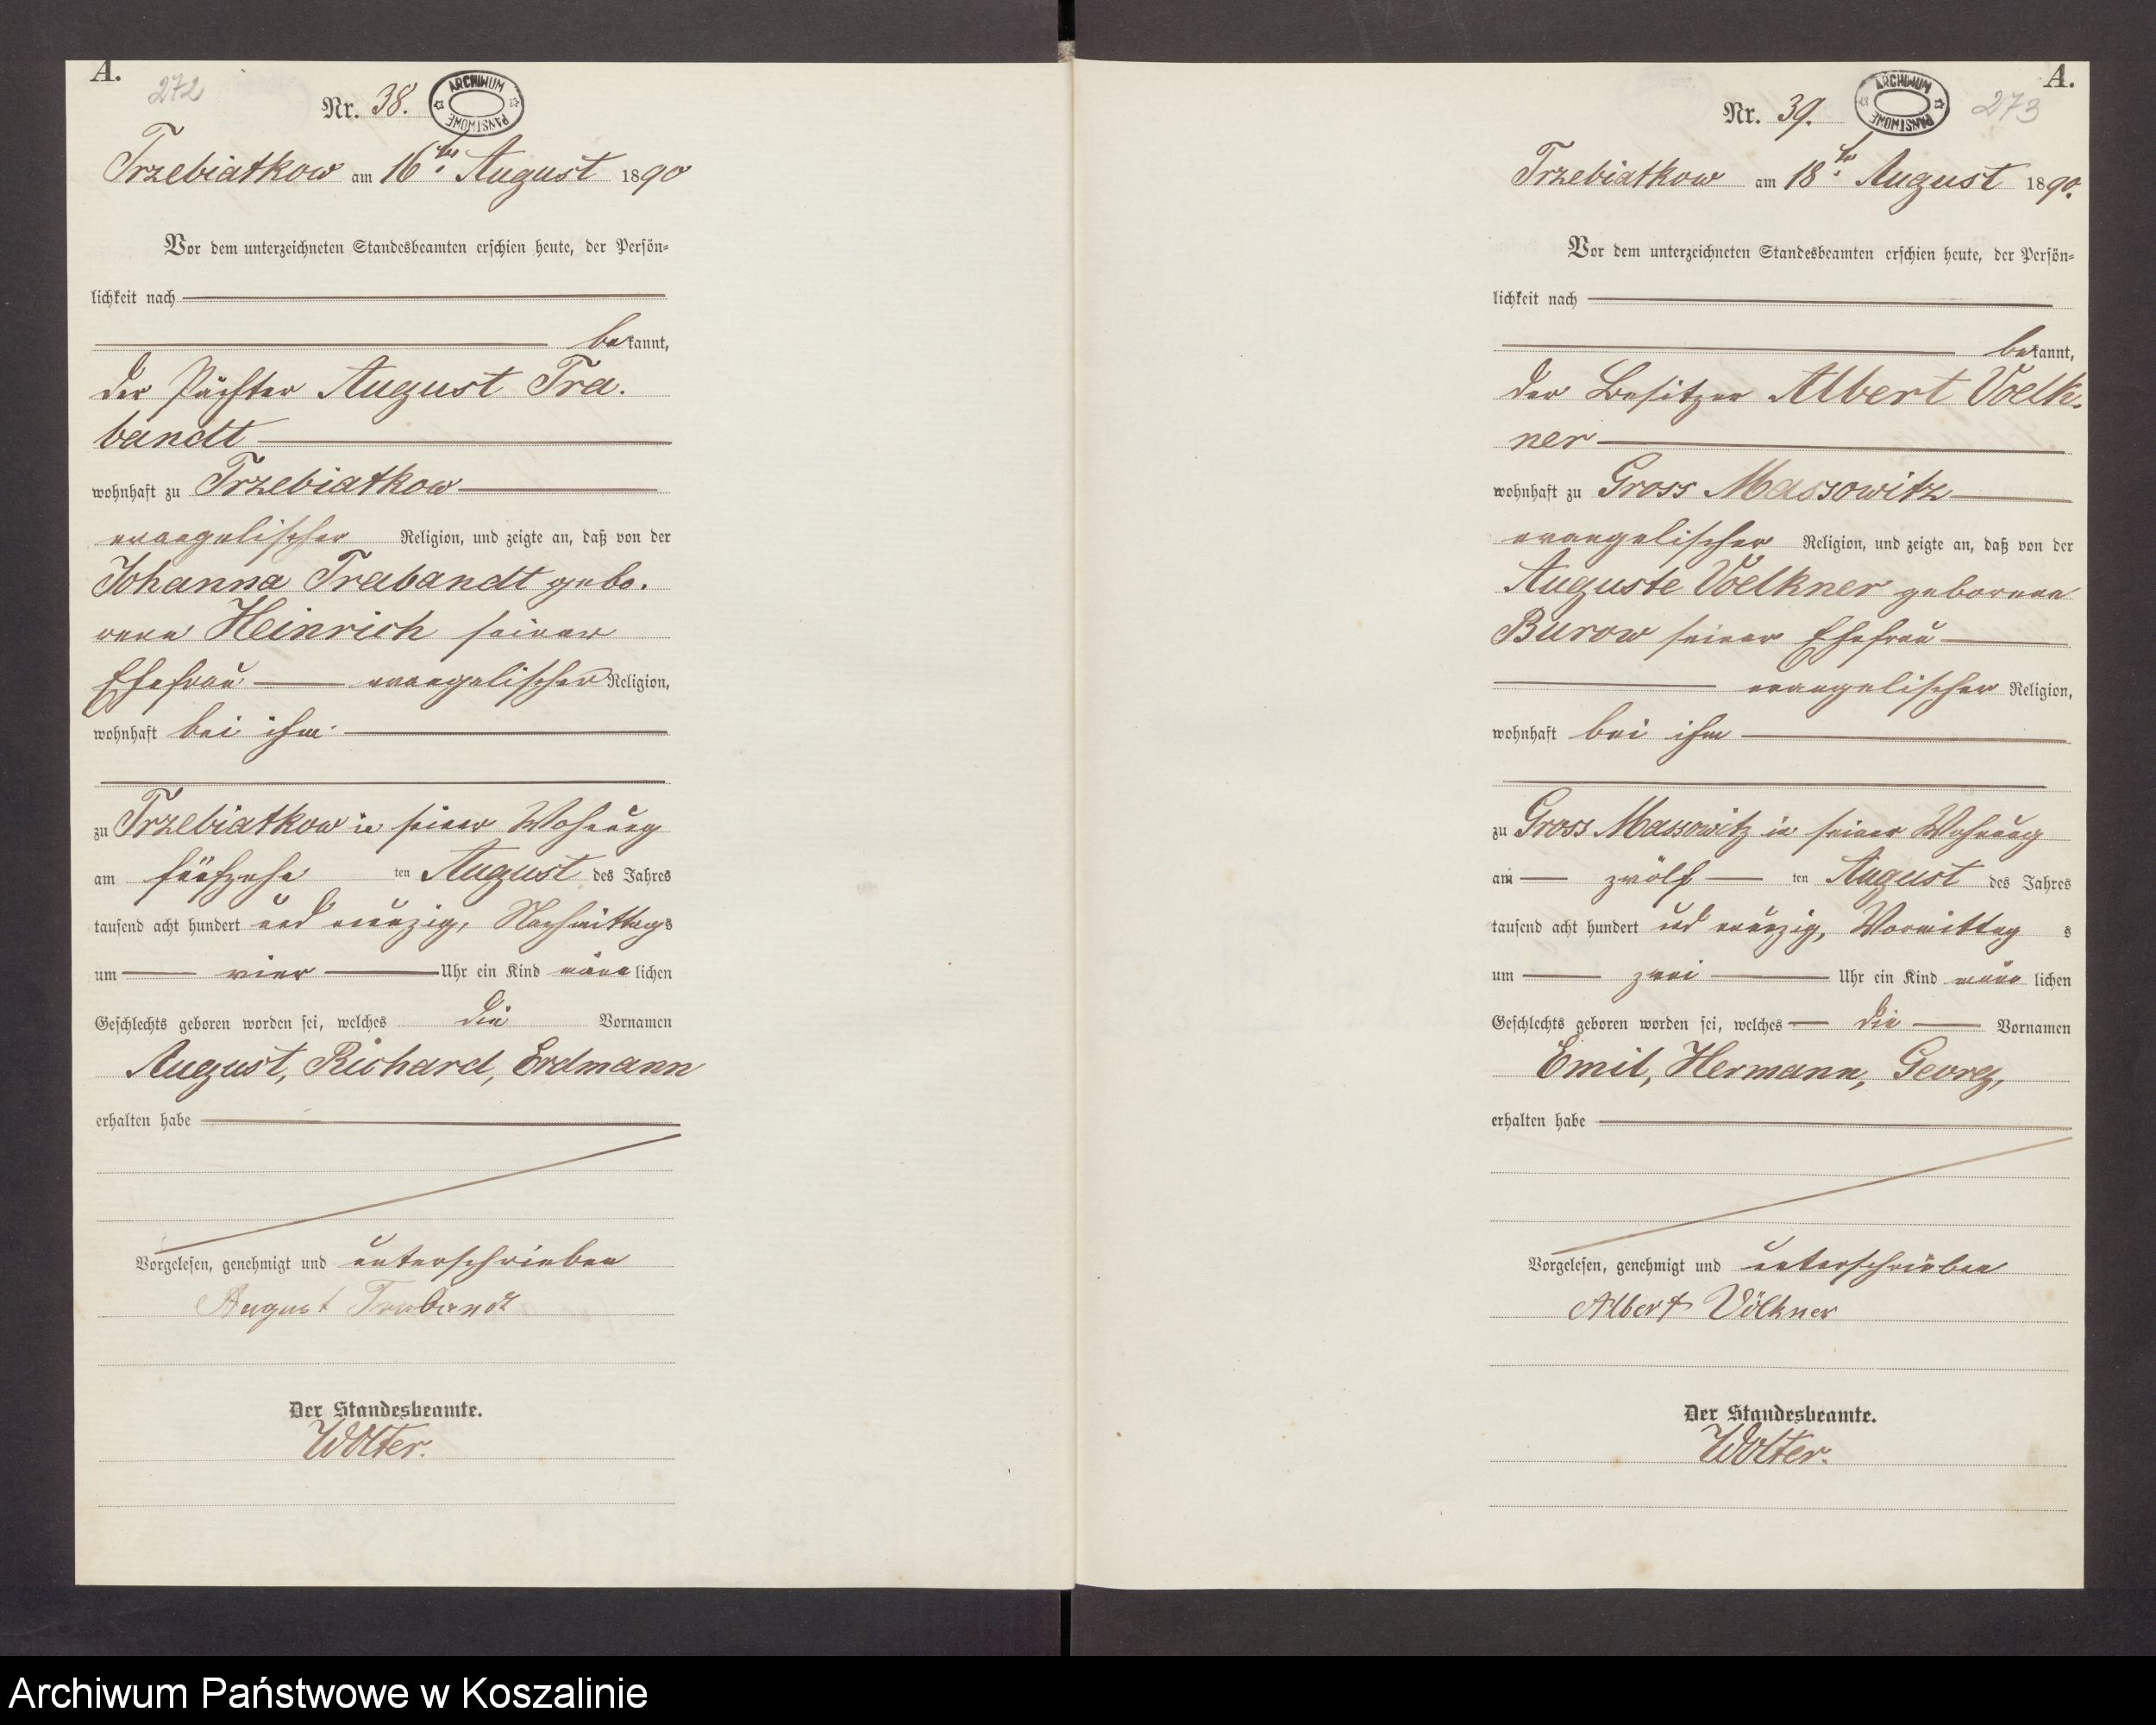 A.
272
Nr. 38.
ARCHIWUM PAŃSTWOWE
Trzebiatkow am 16ten August 1890
Vor dem unterzeichneten Standesbeamten erschien heute, der Persön-
lichkeit nach
bekannt,
der Pächter August Tra-
bandt
wohnhaft zu Trzebiatkow
evangelischer Religion, und zeigte an, daß von der
Johanna Trabandt gebo-
rene Heinrich seiner
Ehefrau evangelischer Religion,
wohnhaft bei ihm
zu Trzebiatkow in seiner Wohnung
am fünfzehn ten August des Jahres
tausend acht hundert und neunzig, Nachmittags
um vier Uhr ein Kind männlichen
Geschlechts geboren worden sei, welches die Vornamen
August, Richard, Erdmann
erhalten habe
Vorgelesen, genehmigt und unterschrieben
August Trabandt
Der Standesbeamte.
Wolter.
A.
273
Nr. 39.
ARCHIWUM PAŃSTWOWE
Trzebiatkow am 18ten August 1890.
Vor dem unterzeichneten Standesbeamten erschien heute, der Persön-
lichkeit nach
bekannt,
der Besitzer Albert Voelk-
ner
wohnhaft zu Gross Massowitz
evangelischer Religion, und zeigte an, daß von der
Auguste Voelkner geborene
Burow seiner Ehefrau
evangelischer Religion,
wohnhaft bei ihm
zu Gross Massowitz in seiner Wohnung
am zwölf ten August des Jahres
tausend acht hundert und neunzig, Vormittag s
um zwei Uhr ein Kind männ lichen
Geschlechts geboren worden sei, welches die Vornamen
Emil, Hermann, Georg,
erhalten habe
Vorgelesen, genehmigt und unterschrieben
Albert Völkner
Der Standesbeamte.
Wolter.
Archiwum Państwowe w Koszalinie